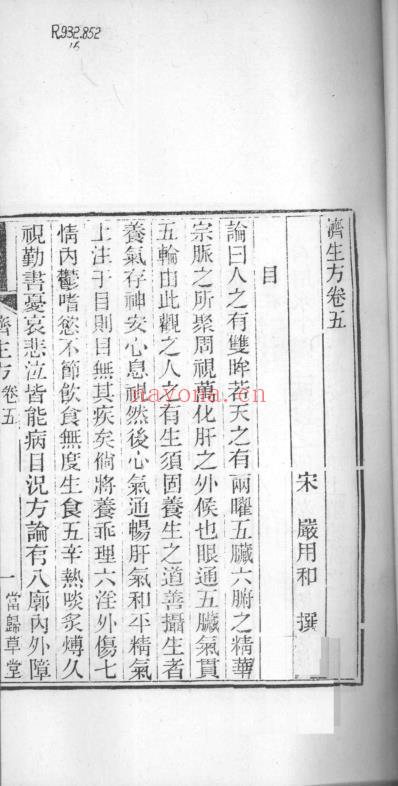 R932.852
16
濟生方卷五
宋 嚴用和 撰
目
論曰人之有雙眸若天之有兩曜五臟六腑之精華
宗脈之所聚周視萬化肝之外候也眼通五臟氣貫
五輪由此觀之人之有生須固養生之道善攝生者
養氣存神安心息視然後心氣通暢肝氣和平精氣
上注于目則目無其疾矣倘將養乖理六淫外傷七
情內鬱嗜慾不節飲食無度生食五辛熱啖炙煿久
視勤書憂哀悲泣皆能病目況方論有八廓內外障
濟生方卷五
一
當歸草堂
nayona.cn